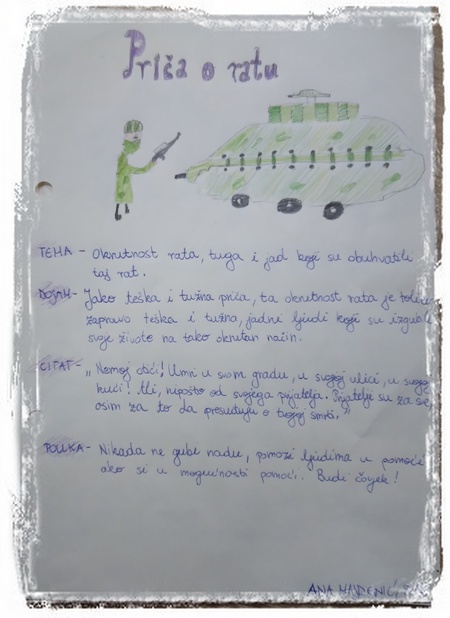 Priča o ratu
TEMA - Okrutnost rata, tuga i jad koji su obuhvatili
taj rat.
DOJAM - Jako teška i tužna priča, ta okrutnost rata je toliko
zapravo teška i tužna, jadni ljudi koji su izgubili
svoje živote na tako okrutan način.
CITAT - „Nemoj otići! Umri u svom gradu, u svojoj ulici, u svojoj
kući! Ali, nipošto od svojega prijatelja. Prijatelji su za sve,
osim za to da presuđuju o tvojoj smrti."
POUKA - Nikada ne gubi nadu, pomozi ljudima u pomoći
ako si u mogućnosti pomoći. Budi čovjek!
ANA